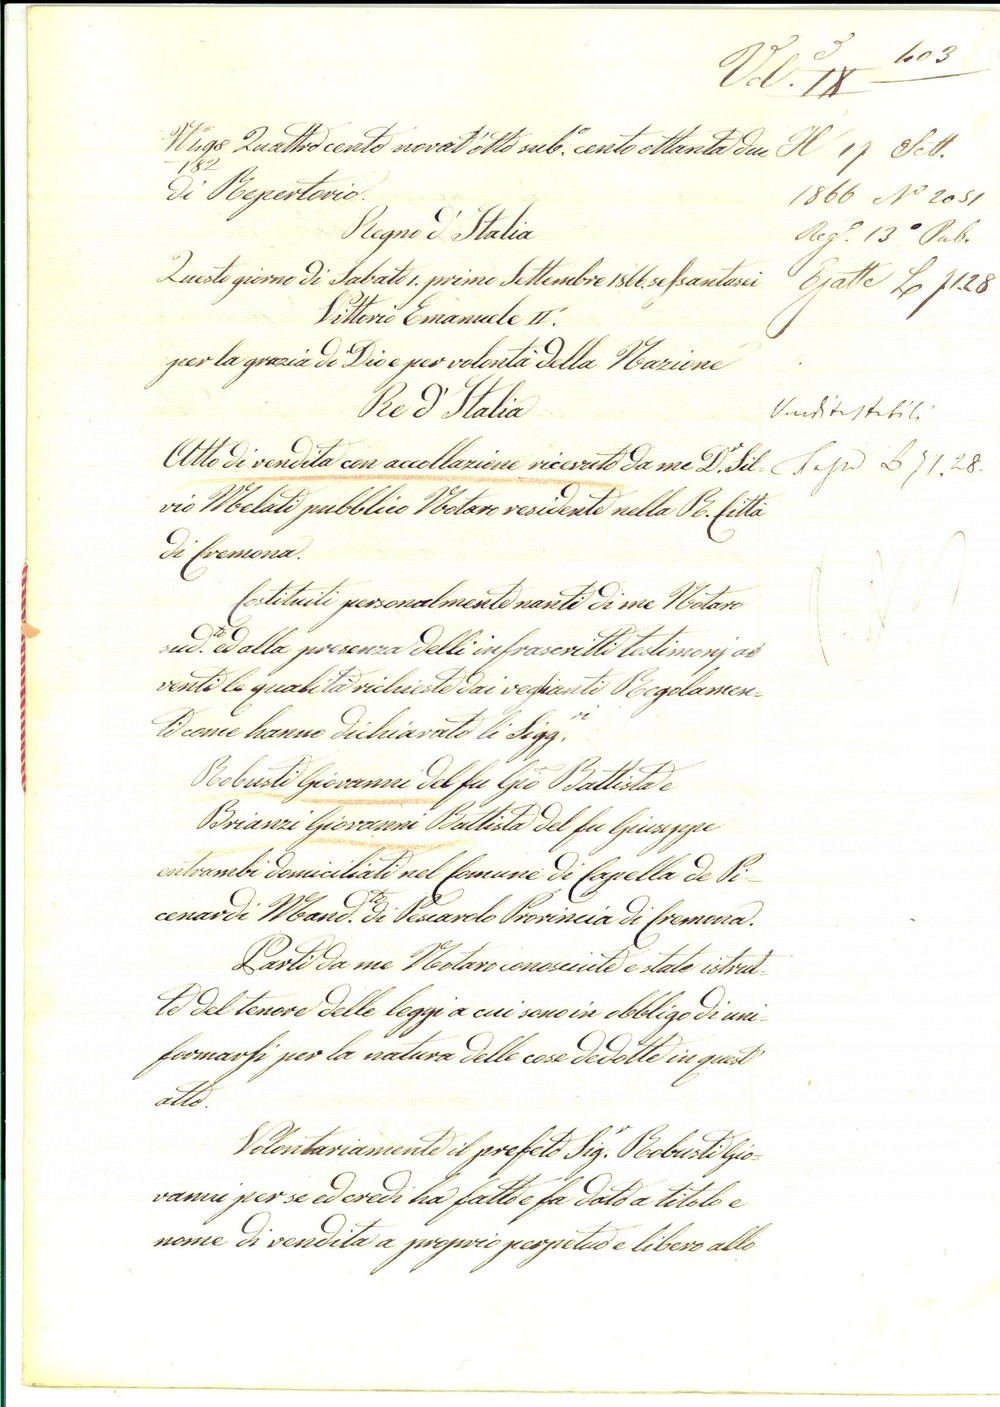 Vol. IX 5 403
N. 498 Quattrocento novant'otto sub.° cento ottanta due
182
di Repertorio.
Regno d'Italia
Questo giorno di Sabato 1. primo Settembre 1866. sessantasei
Vittorio Emanuele II.
per la grazia di Dio e per volontà della Nazione
Re d'Italia
Atto di vendita con accollazione ricevuto da me D.r Sil-
vio Melati pubblico Notaro residente nella R. Città
di Cremona.
Costituiti personalmente nanti di me Notaro
sud.to ed alla presenza delli infrascritti testimonj a-
venti le qualità richieste dai veglianti Regolamen-
ti come hanno dichiarato li Sigg.ri
Robusti Giovanni del fu Gio Battista e
Brianzi Giovanni Battista del fu Giuseppe
entrambi domiciliati nel Comune di Capella de Pi-
cenardi Mand.to di Pescarolo Provincia di Cremona.
Parti da me Notaro conosciute e state istrut-
te del tenore delle leggi a cui sono in obbligo di uni-
formarsi per la natura delle cose dedotte in quest'
atto.
Volontariamente il prefato Sig.r Robusti Gio-
vanni per se ed eredi ha fatto e fa dato a titolo e
nome di vendita a proprio perpetuo e libero allo
17 Sett.
1866 N° 2051
Reg.° 13° Pub.
Esatte L 71.28
Vendite stabili
L 71.28.